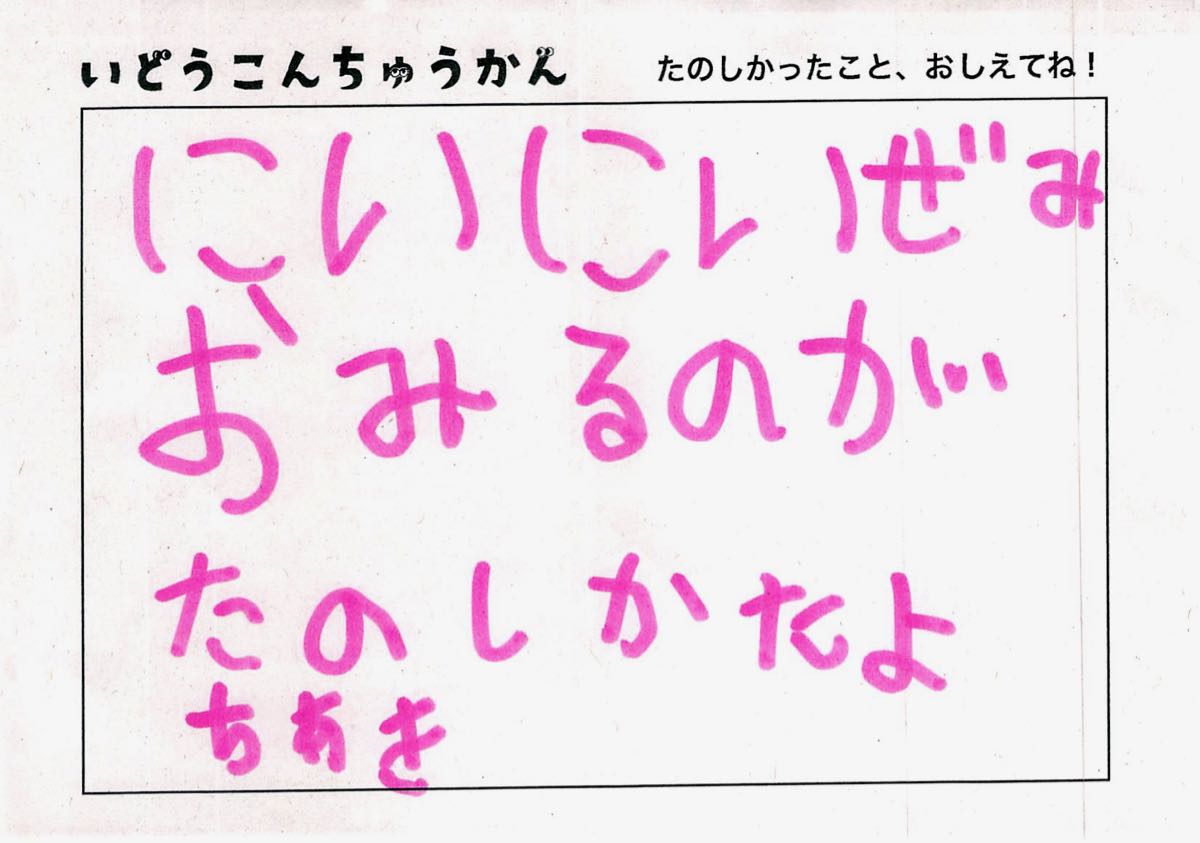 いどうこんちゅうかん
たのしかったこと、おしえてね！
にいにいぜみ
おみるのが
たのしかたよ
ちあき